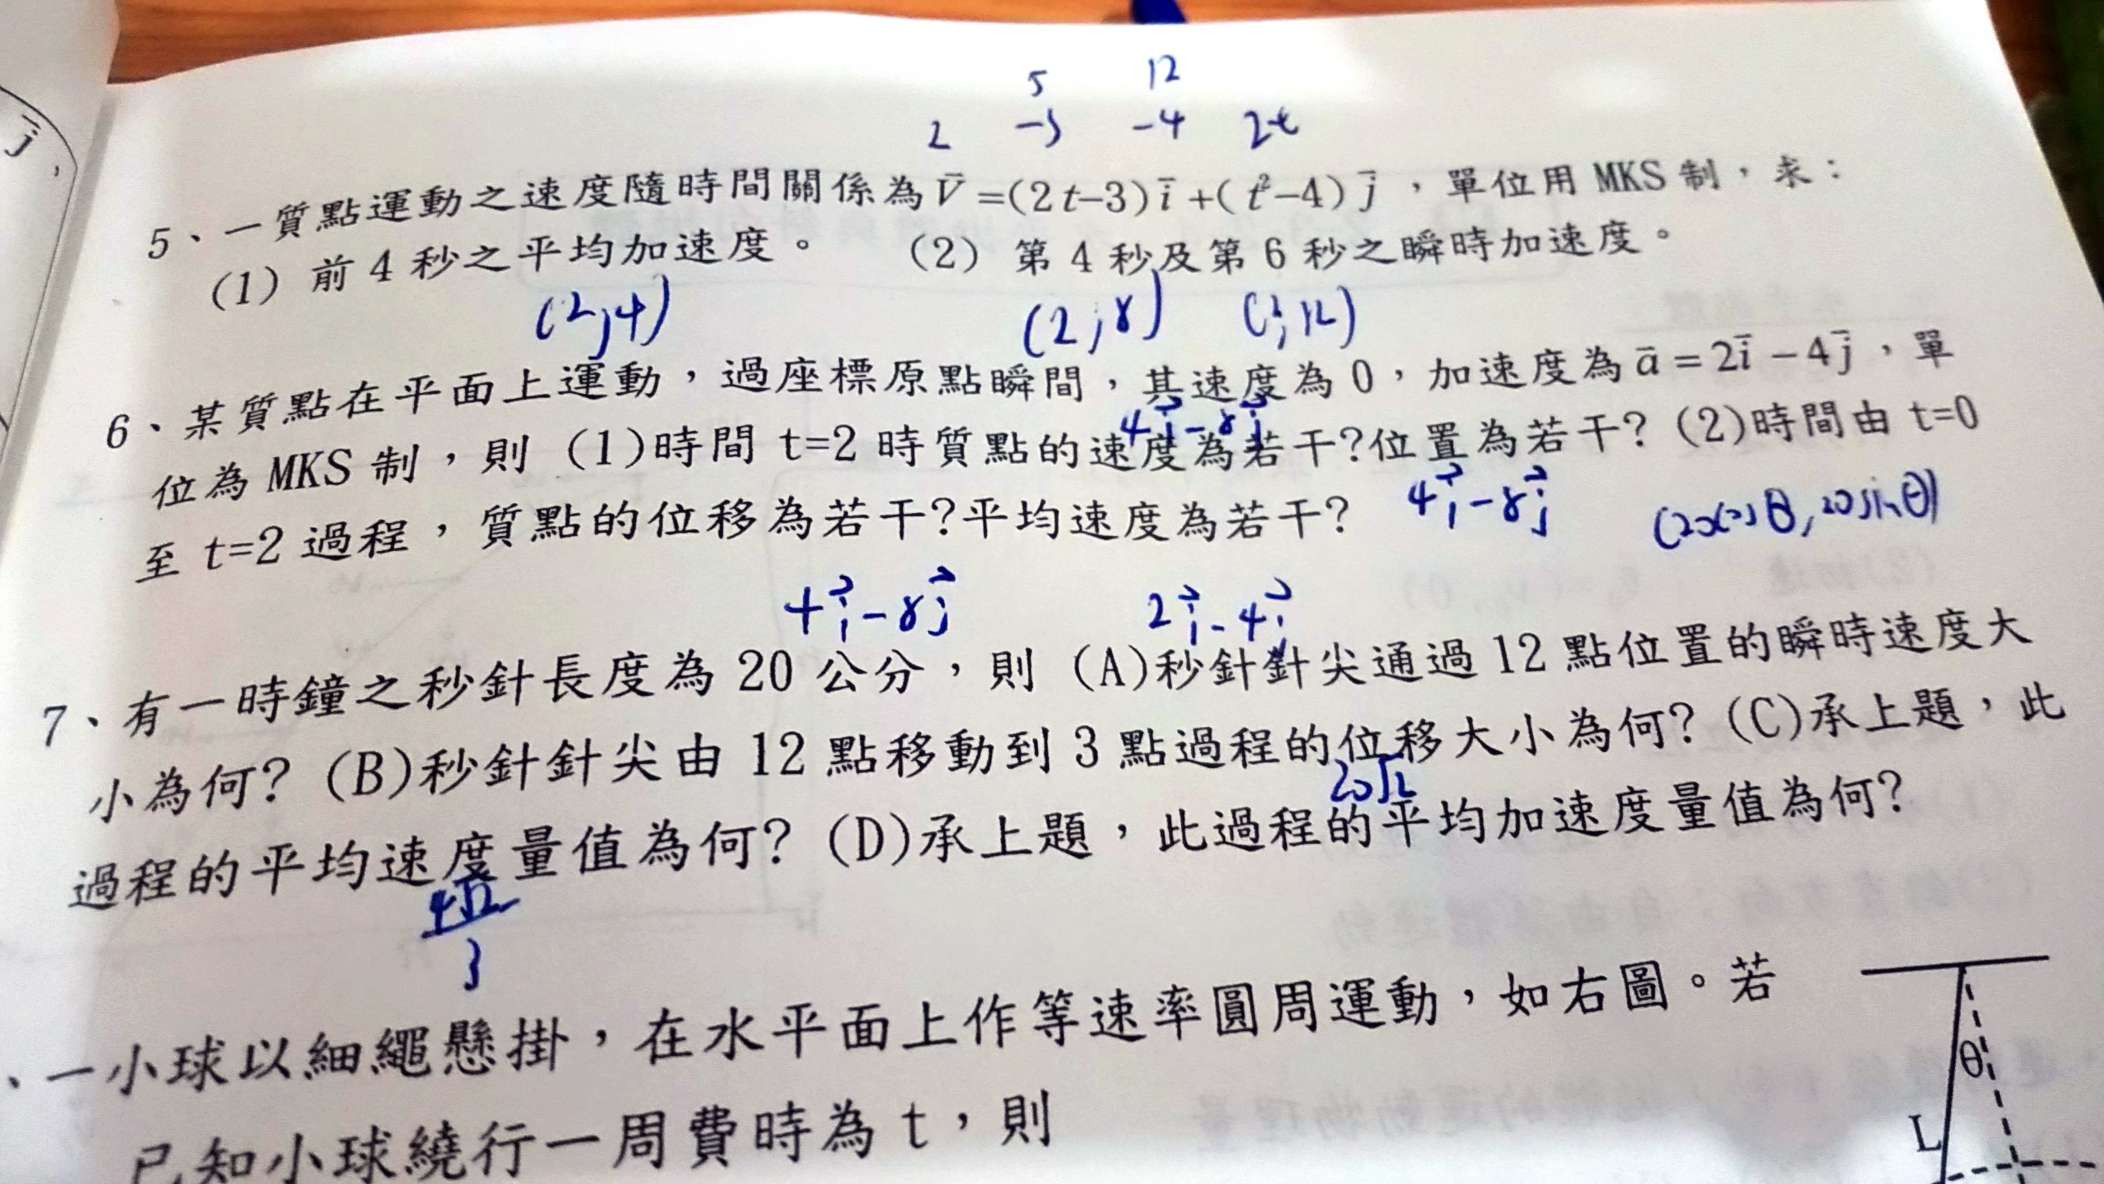 j ,
5 12
2 -3 -4 2t
5、一質點運動之速度隨時間關係為 V̄ =(2t-3) ī +( t²-4) j̄ ，單位用 MKS 制，求：
(1) 前 4 秒之平均加速度。 (2) 第 4 秒及第 6 秒之瞬時加速度。
(2,4) (2,8) (2,12)
6、某質點在平面上運動，過座標原點瞬間，其速度為 0，加速度為 ā = 2ī - 4j̄ ，單
4i⃗-8j⃗
位為 MKS 制，則 (1)時間 t=2 時質點的速度為若干?位置為若干? (2)時間由 t=0
4i⃗-8j⃗ (20cosθ, 20sinθ)
至 t=2 過程，質點的位移為若干?平均速度為若干?
4i⃗-8j⃗ 2i⃗-4j⃗
7、有一時鐘之秒針長度為 20 公分，則 (A)秒針針尖通過 12 點位置的瞬時速度大
小為何? (B)秒針針尖由 12 點移動到 3 點過程的位移大小為何? (C)承上題，此
20√2
過程的平均速度量值為何? (D)承上題，此過程的平均加速度量值為何?
4√2/3
、一小球以細繩懸掛，在水平面上作等速率圓周運動，如右圖。若
已知小球繞行一周費時為 t，則
θ
L